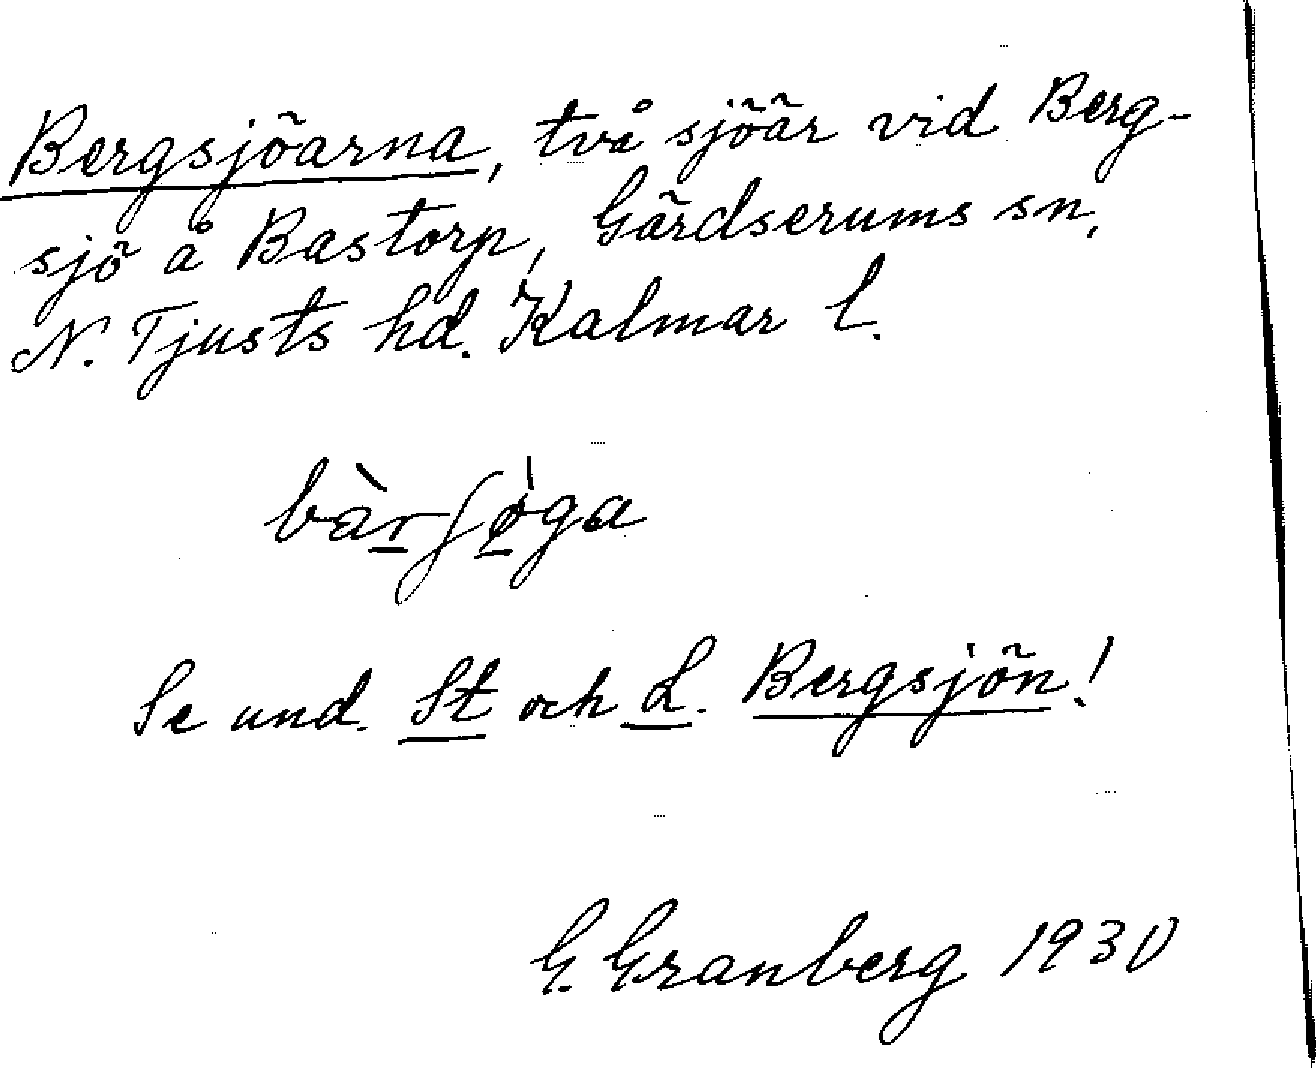 Bergsjöarna, två sjöar vid Berg-
sjö å Bastorp, Gärdserums sn,
N. Tjusts hd. Kalmar l.
bàrʃø̀ga
Se und. St och L. Bergsjön!
G. Granberg 1930